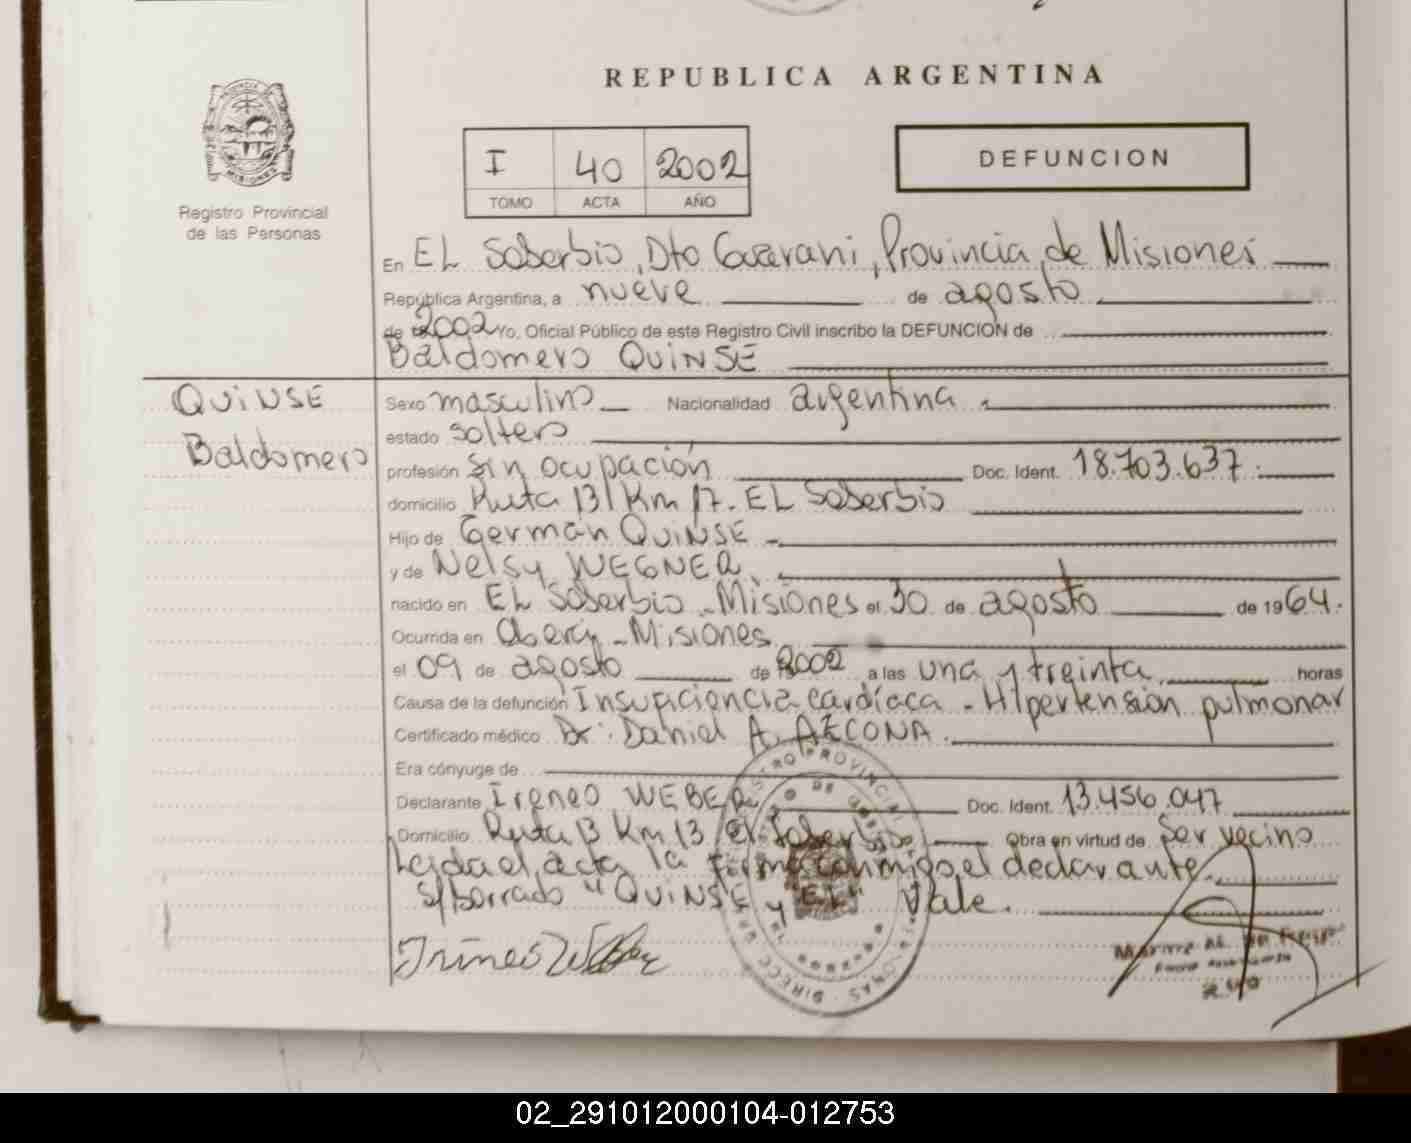 REPUBLICA ARGENTINA
I 40 2002
TOMO ACTA AÑO
DEFUNCION
MISIONES
Registro Provincial
de las Personas
En EL Soberbio, Dto Guarani, Provincia de Misiones
República Argentina, a nueve de agosto
de 2002 Yo, Oficial Público de este Registro Civil inscribo la DEFUNCION de
Baldomero QUiNSE
QUiNSE
Baldomero
Sexo masculino Nacionalidad argentina
estado soltero
profesión Sin ocupación Doc. Ident. 18.703.637
domicilio Ruta 13 / Km 17. EL Soberbio
Hijo de Germán QUiNSE
y de Nelsy WEGNER
nacido en EL Soberbio - Misiones el 30 de agosto de 1964.
Ocurrida en Oberá - Misiones
el 09 de agosto de 2002 a las una y treinta horas
Causa de la defunción Insuficiencia cardíaca - Hipertensión pulmonar
Certificado médico Dr. Daniel A. AZCONA.
Era cónyuge de
Declarante Ireneo WEBER Doc. Ident. 13.456.047
Domicilio Ruta 13 Km 13 El Soberbio Obra en virtud de Ser vecino
Leida el acta la firma conmigo el declarante.
s/borrado "QUiNSE y EL" Vale.
02_291012000104-012753